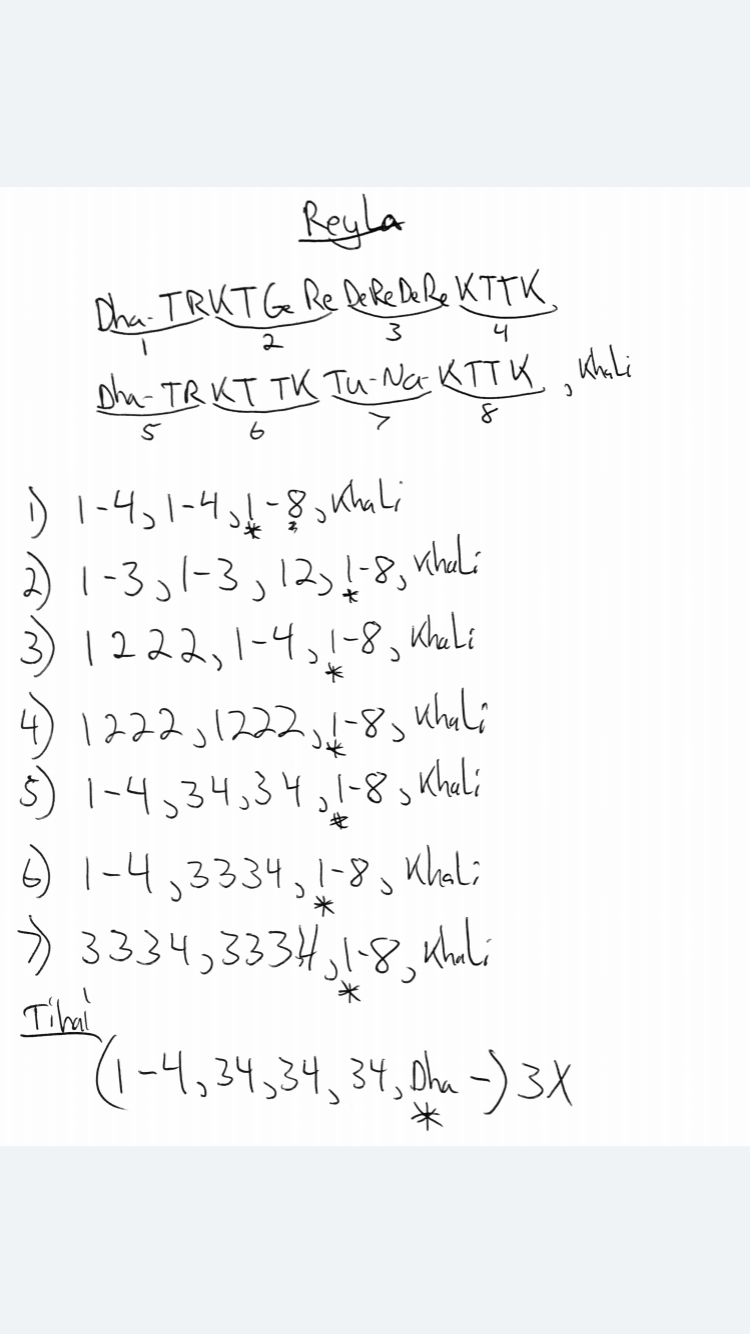 Reyla
Dha-TRKTGeReDeReDeReKTTK
1 2 3 4
Dha-TRKTTKTu-Na-KTTK, Khali
5 6 7 8
1) 1-4, 1-4, 1-8, Khali
*
2) 1-3, 1-3, 12, 1-8, Khali
*
3) 1222, 1-4, 1-8, Khali
*
4) 1222, 1222, 1-8, Khali
*
5) 1-4, 34, 34, 1-8, Khali
*
6) 1-4, 3334, 1-8, Khali
*
7) 3334, 3334, 1-8, Khali
*
Tihai
(1-4, 34, 34, 34, Dha -) 3X
*